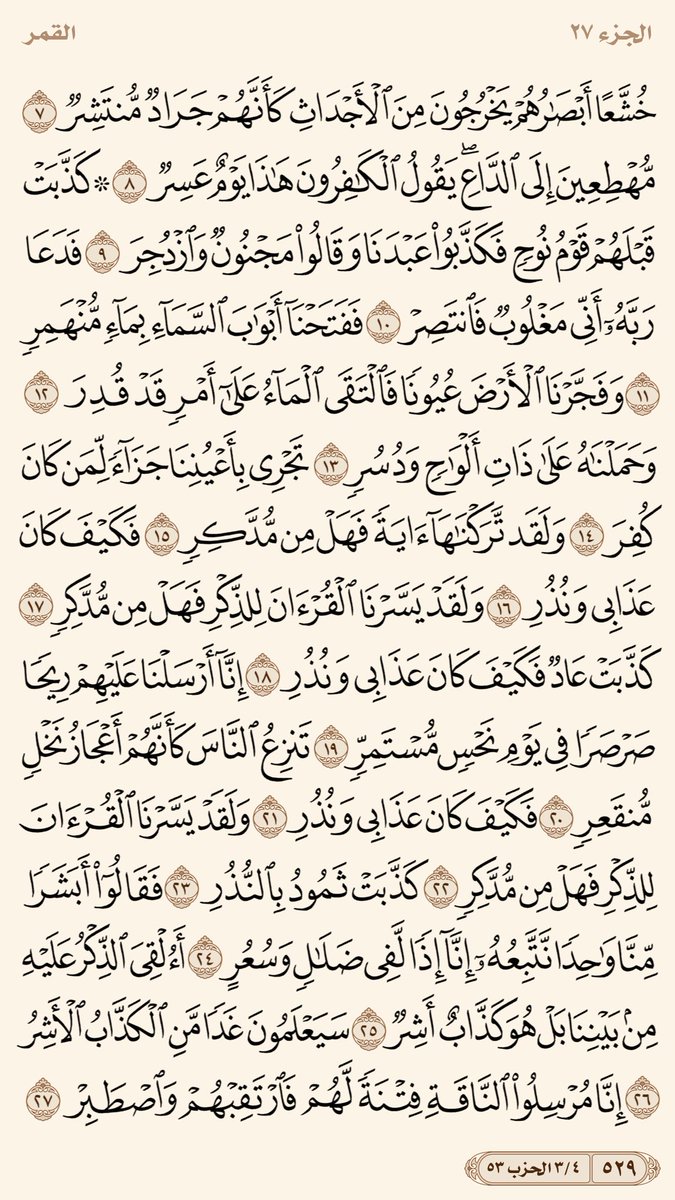 الجزء ٢٧ القمر
خُشَّعًا أَبْصَٰرُهُمْ يَخْرُجُونَ مِنَ ٱلْأَجْدَاثِ كَأَنَّهُمْ جَرَادٌ مُّنتَشِرٌ ٧
مُّهْطِعِينَ إِلَى ٱلدَّاعِ ۖ يَقُولُ ٱلْكَٰفِرُونَ هَٰذَا يَوْمٌ عَسِرٌ ٨ ۞ كَذَّبَتْ
قَبْلَهُمْ قَوْمُ نُوحٍ فَكَذَّبُوا۟ عَبْدَنَا وَقَالُوا۟ مَجْنُونٌ وَٱزْدُجِرَ ٩ فَدَعَا
رَبَّهُۥٓ أَنِّى مَغْلُوبٌ فَٱنتَصِرْ ١٠ فَفَتَحْنَآ أَبْوَٰبَ ٱلسَّمَآءِ بِمَآءٍ مُّنْهَمِرٍ
١١ وَفَجَّرْنَا ٱلْأَرْضَ عُيُونًا فَٱلْتَقَى ٱلْمَآءُ عَلَىٰٓ أَمْرٍ قَدْ قُدِرَ ١٢
وَحَمَلْنَٰهُ عَلَىٰ ذَاتِ أَلْوَٰحٍ وَدُسُرٍ ١٣ تَجْرِى بِأَعْيُنِنَا جَزَآءً لِّمَن كَانَ
كُفِرَ ١٤ وَلَقَد تَّرَكْنَٰهَآ ءَايَةً فَهَلْ مِن مُّدَّكِرٍ ١٥ فَكَيْفَ كَانَ
عَذَابِى وَنُذُرِ ١٦ وَلَقَدْ يَسَّرْنَا ٱلْقُرْءَانَ لِلذِّكْرِ فَهَلْ مِن مُّدَّكِرٍ ١٧
كَذَّبَتْ عَادٌ فَكَيْفَ كَانَ عَذَابِى وَنُذُرِ ١٨ إِنَّآ أَرْسَلْنَا عَلَيْهِمْ رِيحًا
صَرْصَرًا فِى يَوْمِ نَحْسٍ مُّسْتَمِرٍّ ١٩ تَنزِعُ ٱلنَّاسَ كَأَنَّهُمْ أَعْجَازُ نَخْلٍ
مُّنقَعِرٍ ٢٠ فَكَيْفَ كَانَ عَذَابِى وَنُذُرِ ٢١ وَلَقَدْ يَسَّرْنَا ٱلْقُرْءَانَ
لِلذِّكْرِ فَهَلْ مِن مُّدَّكِرٍ ٢٢ كَذَّبَتْ ثَمُودُ بِٱلنُّذُرِ ٢٣ فَقَالُوٓا۟ أَبَشَرًا
مِّنَّا وَٰحِدًا نَّتَّبِعُهُۥٓ إِنَّآ إِذًا لَّفِى ضَلَٰلٍ وَسُعُرٍ ٢٤ أَءُلْقِىَ ٱلذِّكْرُ عَلَيْهِ
مِنۢ بَيْنِنَا بَلْ هُوَ كَذَّابٌ أَشِرٌ ٢٥ سَيَعْلَمُونَ غَدًا مَّنِ ٱلْكَذَّابُ ٱلْأَشِرُ
٢٦ إِنَّا مُرْسِلُوا۟ ٱلنَّاقَةِ فِتْنَةً لَّهُمْ فَٱرْتَقِبْهُمْ وَٱصْطَبِرْ ٢٧
٥٢٩ ٣/٤ الحزب ٥٣